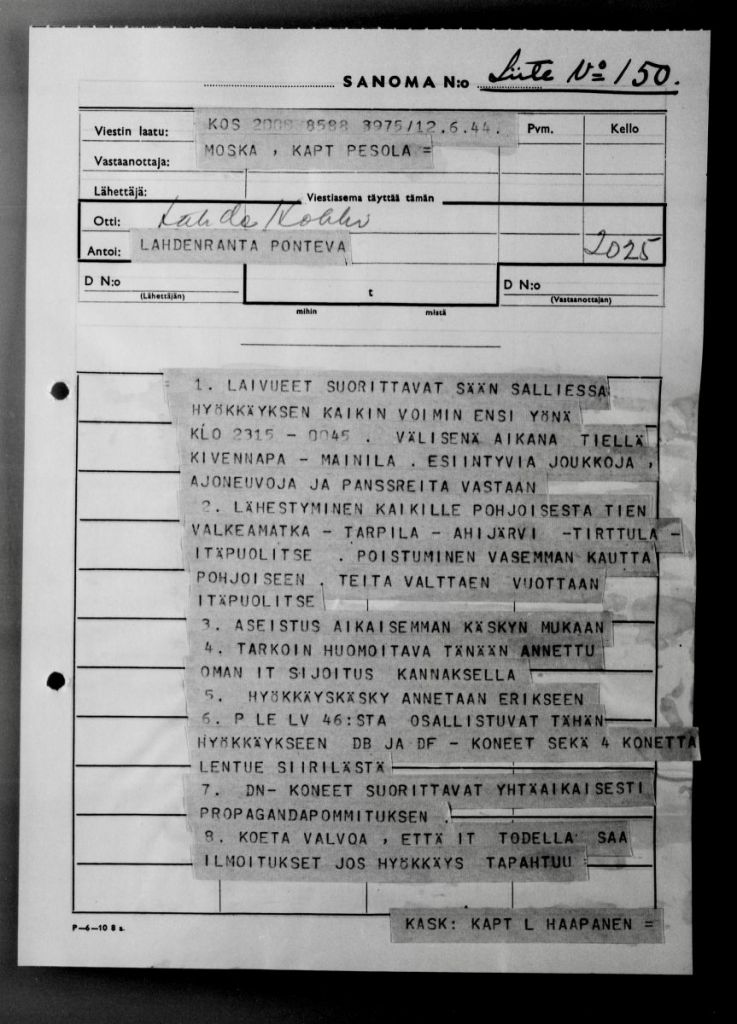 SANOMA N:o Liite No 150.
Viestin laatu: KOS 2008 8588 3975/12.6.44. Pvm. Kello
Vastaanottaja: MOSKA , KAPT PESOLA =
Lähettäjä:
Viestiasema täyttää tämän
Otti:
Antoi: LAHDENRANTA PONTEVA 2025
D N:o t D N:o
(Lähettäjän) (Vastaanottajan)
mihin mistä
= 1. LAIVUEET SUORITTAVAT SÄÄN SALLIESSA
HYÖKKÄYKSEN KAIKIN VOIMIN ENSI YÖNÄ
KLO 2315 - 0045 . VÄLISENÄ AIKANA TIELLÄ
KIVENNAPA - MAINILA . ESIINTYVIA JOUKKOJA ,
AJONEUVOJA JA PANSSREITA VASTAAN
2. LÄHESTYMINEN KAIKILLE POHJOISESTA TIEN
VALKEAMATKA - TARPILA - AHIJÄRVI -TIRTTULA -
ITÄPUOLITSE . POISTUMINEN VASEMMAN KAUTTA
POHJOISEEN . TEITA VALTTAEN VUOTTAAN
ITÄPUOLITSE
3. ASEISTUS AIKAISEMMAN KÄSKYN MUKAAN
4. TARKOIN HUOMOITAVA TÄNÄÄN ANNETTU
OMAN IT SIJOITUS KANNAKSELLA
5. HYÖKKÄYSKÄSKY ANNETAAN ERIKSEEN
6. P LE LV 46:STA OSALLISTUVAT TÄHÄN
HYÖKKÄYKSEEN DB JA DF - KONEET SEKÄ 4 KONETTA
LENTUE SIIRILÄSTÄ
7. DN- KONEET SUORITTAVAT YHTÄAIKAISESTI
PROPAGANDAPOMMITUKSEN .
8. KOETA VALVOA , ETTÄ IT TODELLA SAA
ILMOITUKSET JOS HYÖKKÄYS TAPAHTUU =
P—6—10 8 s.
KASK: KAPT L HAAPANEN =